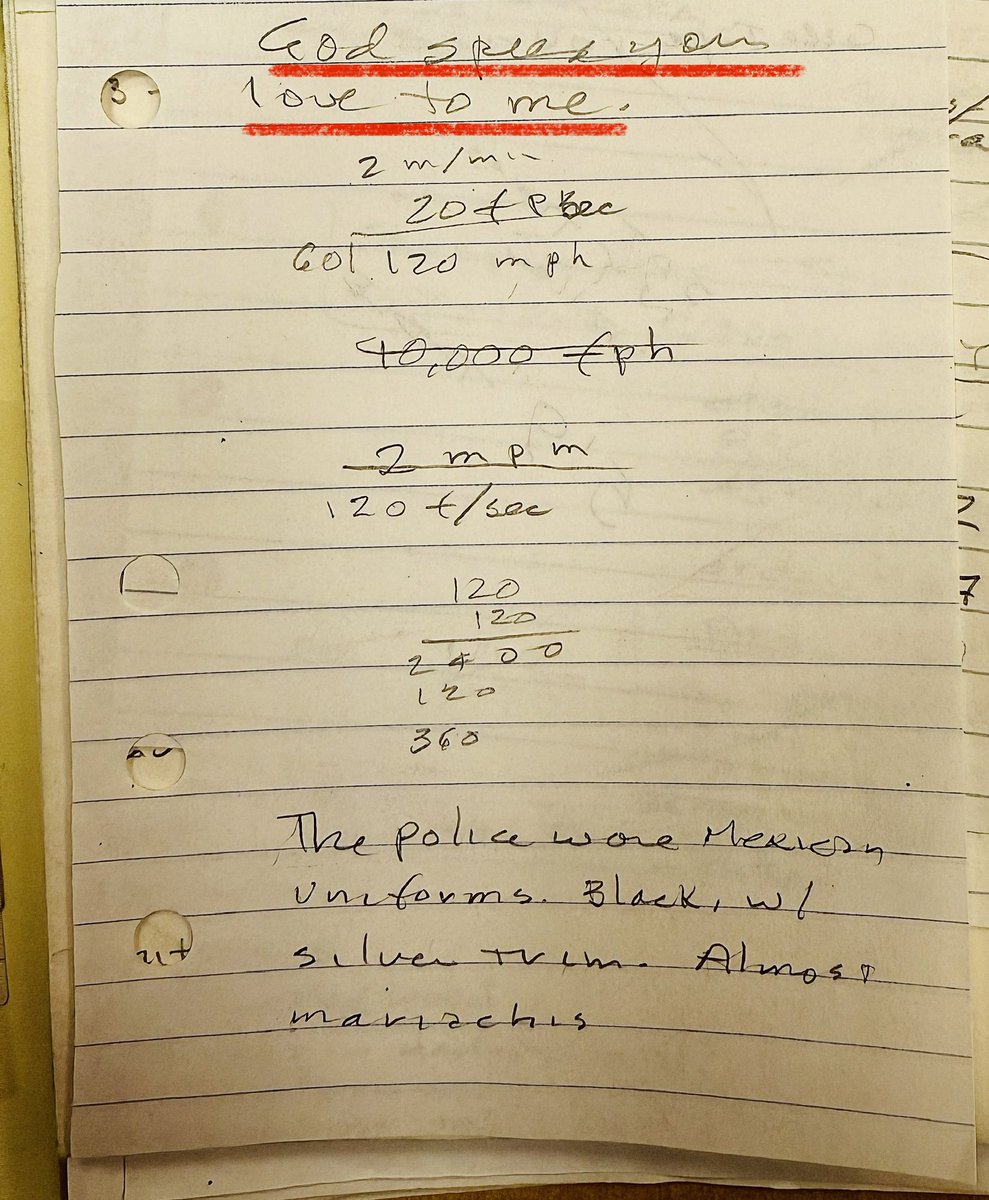 God speed you
love to me.
2 m/min
20 f p sec
60) 120 mph
40,000 fph
2 mpm
120 f/sec
120
120
2400
120
360
The police wore Mexican
uniforms. Black, w/
silver trim. Almost
mariachis